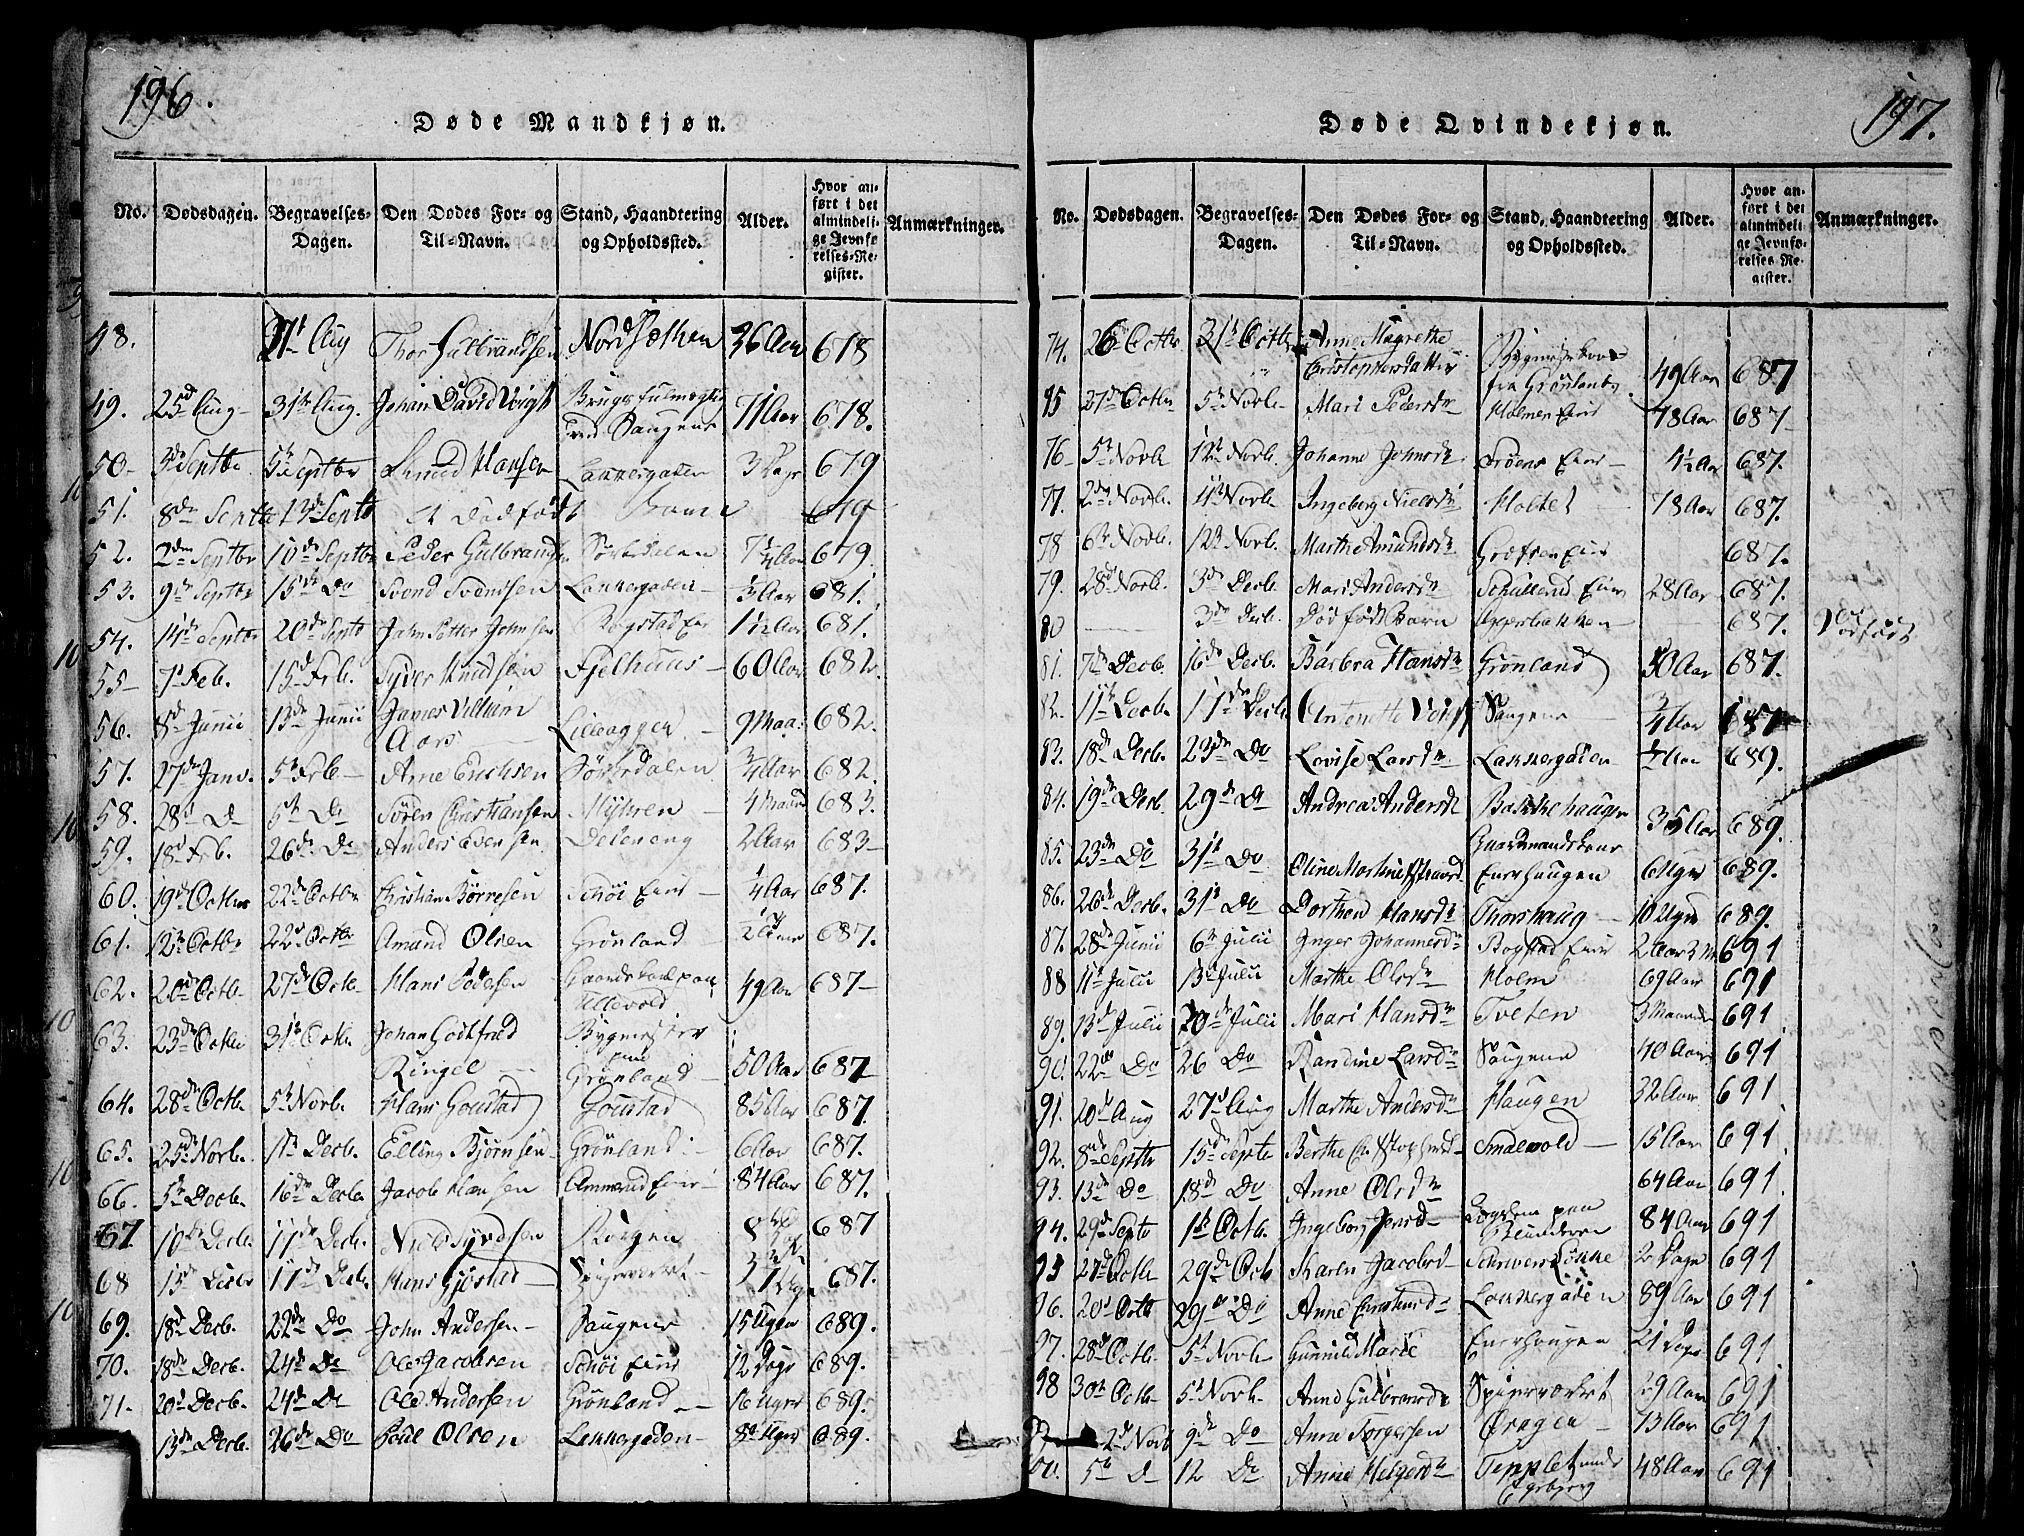 196.
Døde Mandkjøn.
No. Dødsdagen. Begravelses-Dagen. Den Dødes For- og Til-Navn. Stand, Haandtering og Opholdssted. Alder. Hvor anført i det almindelige Jevnførelses-Register. Anmærkninger.
48. 31t Aug Thor Gulbrandsen Nord 36 Aar 678
49. 25d Aug 31te Aug. Johan David Voigt 71 Aar 678.
50 3de Septbr 5te Septbr Knud Hansen Lakkergaden 3 Dage 679
51. 8de Septbr 13de Septb et Dødfødt 679
52. 2den Septbr 10de Septbr Peder Gulbrands. Sørkedalen 679.
53. 9de Septbr 15de Do Svend Svendsen Lakkergaden Aar 681.
54. 14de Septbr 20de Septb John Petter Johnsen Bogstad Eier 681.
55 7d Feb. 15d Feb. Syver Knudsen Fjelhuus 60 Aar 682.
56. 8d Junii 13de Junii James Villiam Aars Lilleaggen 9 Maa. 682.
57. 27de Janv. 5te Feb Arne Erichsen Sørkedalen 3/4 Aar 682.
58. 28d D 5te Do Søren Christiansen Myhren 4 Maan 683.
59. 18d Feb. 26de Do Anders Evensen Deleneng 2 Aar 683
60. 19de Octbr 22de Octbr Christian Børresen Schøi Eier 1/4 Aar 687.
61. 12te Octbr 22d Octbr Amand Olsen Grønland 687.
62. 20de Octb 27de Octb Hans Pedersen Gaardskarl paa Ullevold 49 Aar 687
63. 23de Octbr 31te Octb. Johan Gottfried Ringel Bygmester Grønland 50 Aar 687
64. 28de Octb. 5te Novb. Hans Goustad Goustad 85 Aar 687.
65. 25de Novb. 1te Decb. Elling Bjørnsen Grønland 6 Aar 687.
66. 5te Decb. 16de Decbr Jacob Hansen Ammerud Eier 84 Aar 687.
67 10de Decb. 17de Decb. Niels Syvdsen Borgen 687
68 13de Decbr 17de Decb. Hans Gjøstad Spigerværket 687.
69. 18d Decb. 22de Do John Andersen Saugene 15 Ugen 689.
70. 18de Decb. 24de Do Ole Jacobsen Schøi Eier 12 Dage 689.
71. 20d Decb. 24de Do Ole Andersen Grønland 16 Uger 689.
13de Decb. 26de Do Poul Olsen Lakkergaden 8 Uger 689.
197.
Døde Qvindekjøn.
No. Dødsdagen. Begravelses-Dagen. Den Dødes For- og Til-Navn. Stand, Haandtering og Opholdssted. Alder. Hvor anført i det almindelige Jevnførelses-Register. Anmærkninger.
74. 26 Octbr. 31te Octbr Anne Magrethe Christophersdatter fra Grønland 49 Aar 687
75 27de Octbr 5te Novb Mari Pedersd Holmen Eier 78 Aar 687
76 5te Novb 12te Novb. Johanne Johnsd Frøens Eier 4½ Aar 687.
77. 2den Novb. 4te Novb Ingeborg Nielsd Holtet 78 Aar 687.
78 6te Novb. 12te Novb. Marthe Amundsd Grefsen Eier 687.
79. 28d Novb. 3de Decb. Mari Andersd 28 Aar 687.
80 3de Decb. Dødfødt Barn Pipperbakken 687. Dødfødt
81. 7de Decb 16de Decb. Barbra Hansd Grønland 50 Aar 687.
82. 11te Decb. 17de Decb. Antonette Voigt Saugene 3/4 Aar 687
83. 18de Decb. 23de Do Lovise Larsd Lakkergaden Aar 689.
84. 19de Decb. 29de D Andrea Andersd Bakkehaugen 35 Aar 689.
85. 23de Do 31te Do Oline Martine Enerhaugen 6 Uger 689.
86. 26de Decb. 31te Do Dorthea Hansd Thorshaug 10 Uger 689.
87. 28de Junii 6te Julii Inger Johannesd Bogstad Eier 2 Aar 3 M 691
88 11te Julii 13de Julii Marthe Olsd Holm 69 Aar 691
89. 13de Julii 20de Julii Mari Hansd Tveten 3 Maaneder 691.
90. 22de Do 26 Do Randine Larsd Saugene 40 Aar 691
91. 20de Aug 27de Aug Marthe Andersd Haugen 32 Aar 691
92. 8de Septbr 15de Septb Berthe Christophersd Smalvold 15 Aar 691
93. 13de Do 18de Do Anne Olsd 64 Aar 691.
94. 29d Septb 1te Octb. Ingeborg Jensd 84 Aar 691
95 27de Octb 29de Octb Karen Jacobsd Schiverløkke 2 Dage 691
96. 20d Octb 29de Do Anne Lakkergaden 89 Aar 691
97. 28d Octb 5te Novb Gunnild Marie Enerhaugen 21 Dage 691
98 30te Octb 5te Novb. Anne Gulbransd Spigerværket 29 Aar 691
99 2d Novb 9de Do Anne Torgersen Øragen 13 Aar 691
100. 5te D 12 Do Anne Helgesd 48 Aar 691